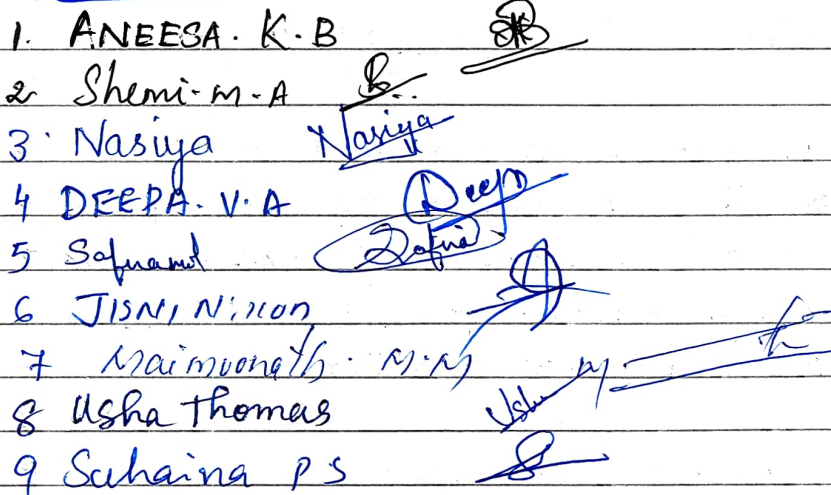 1. ANEESA. K. B
2 Shemi. M. A
3. Nasiya Nasiya
4 DEEPA. V. A Deepa
5 Safnamol Safna
6 JISNI NiXON
7 Maimoonath. M. M
8 Usha Thomas Usha
9 Suhaina P S